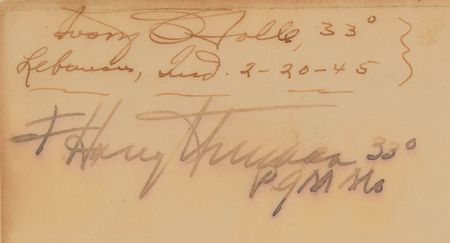 Ivory C Tolle, 33°
Lebanon, Ind. 2-20-45
Harry Truman 33°
P.G.M Mo